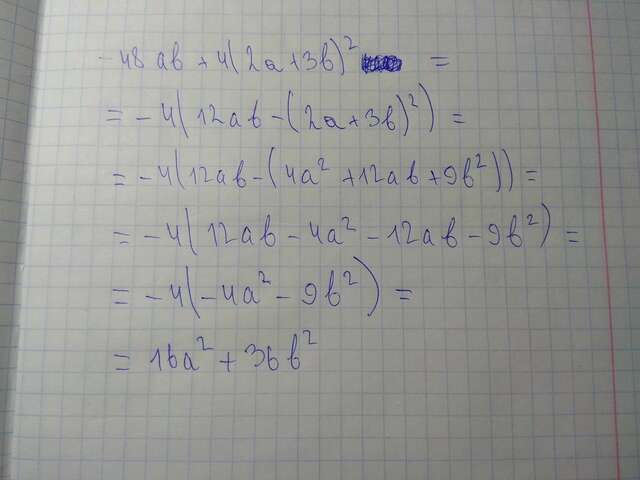 -48ab + 4(2a+3b)² =
= -4(12ab - (2a+3b)²) =
= -4(12ab - (4a² + 12ab + 9b²)) =
= -4(12ab - 4a² - 12ab - 9b²) =
= -4(-4a² - 9b²) =
= 16a² + 36b²